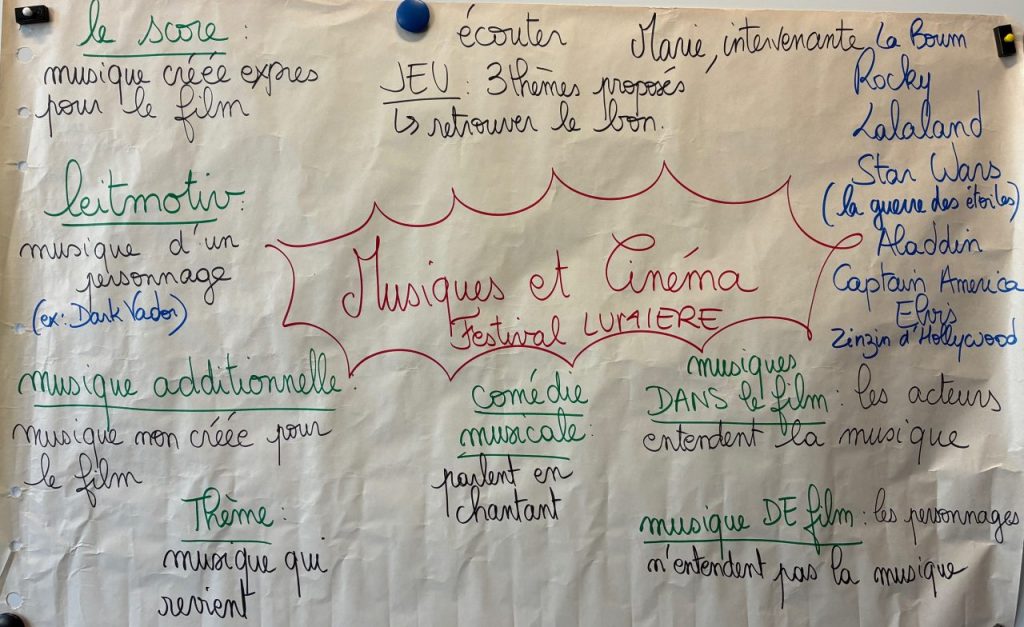 le score :
musique créée expres
pour le film
écouter
JEU : 3 thèmes proposés
↳ retrouver le bon.
Marie, intervenante
La Boum
Rocky
Lalaland
Star Wars
(la guerre des étoiles)
Aladdin
Captain America
Elvis
Zinzin d'Hollywood
leitmotiv :
musique d'un
personnage
(ex: Dark Vador)
Musiques et Cinéma
Festival LUMIERE
musique additionnelle :
musique non créée pour
le film
comédie
musicale :
parlent en
chantant
musiques
DANS le film : les acteurs
entendent la musique
Thème :
musique qui
revient
musique DE film : les personnages
n'entendent pas la musique